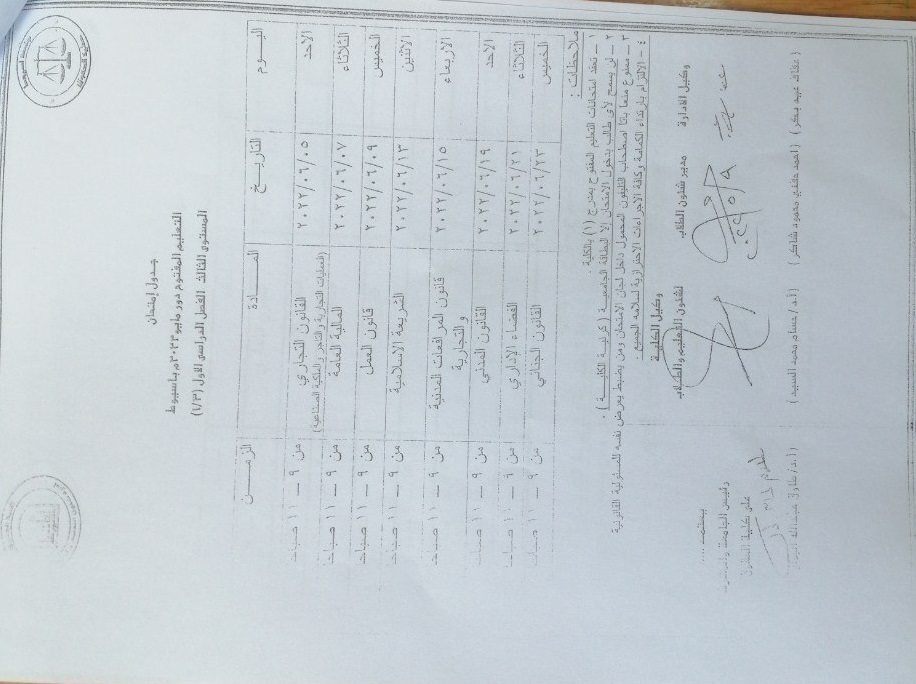 جدول إمتحان
التعليم المفتوح دور مايو ٢٠٢٢م بأسيوط
المستوى الثالث الفصل الدراسي الأول (١/٣)
اليوم التاريخ المادة الزمن
الاحد ٢٠٢٢/٠٦/٠٥ القانون التجاري من ٩ – ١١ صباحا
(العمليات التجارية والتاجر والملكية الصناعية)
الثلاثاء ٢٠٢٢/٠٦/٠٧ المالية العامة من ٩ – ١١ صباحا
الخميس ٢٠٢٢/٠٦/٠٩ قانون العمل من ٩ – ١١ صباحا
الاثنين ٢٠٢٢/٠٦/١٣ الشريعة الاسلامية من ٩ – ١١ صباحا
الاربعاء ٢٠٢٢/٠٦/١٥ قانون المرافعات المدنية من ٩ – ١١ صباحا
والتجارية
الاحد ٢٠٢٢/٠٦/١٩ القانون المدني من ٩ – ١١ صباحا
الثلاثاء ٢٠٢٢/٠٦/٢١ القضاء الاداري من ٩ – ١١ صباحا
الخميس ٢٠٢٢/٠٦/٢٣ القانون الجنائي من ٩ – ١١ صباحا
ملاحظات :
١ – تعقد امتحانات التعليم المفتوح بمدرج (١) بالكلية .
٢ – لن يسمح لأي طالب بدخول الامتحان إلا البطاقة الجامعية ( كرنيه الكلية ) .
٣ – ممنوع منعا باتا اصطحاب التليفون المحمول داخل لجان الامتحان ومن يضبط يعرض نفسه للمسئولية القانونية
٤ – الالتزام بارتداء الكمامة وكافة الاجراءات الاحترازية لسلامة الجميع .
وكيل الكلية
وكيل الادارة مدير شئون الطلاب لشئون التعليم والطلاب
يعتمد ،،،
عميد كلية الحقوق
( أ.د/ حسام محمد السيد )